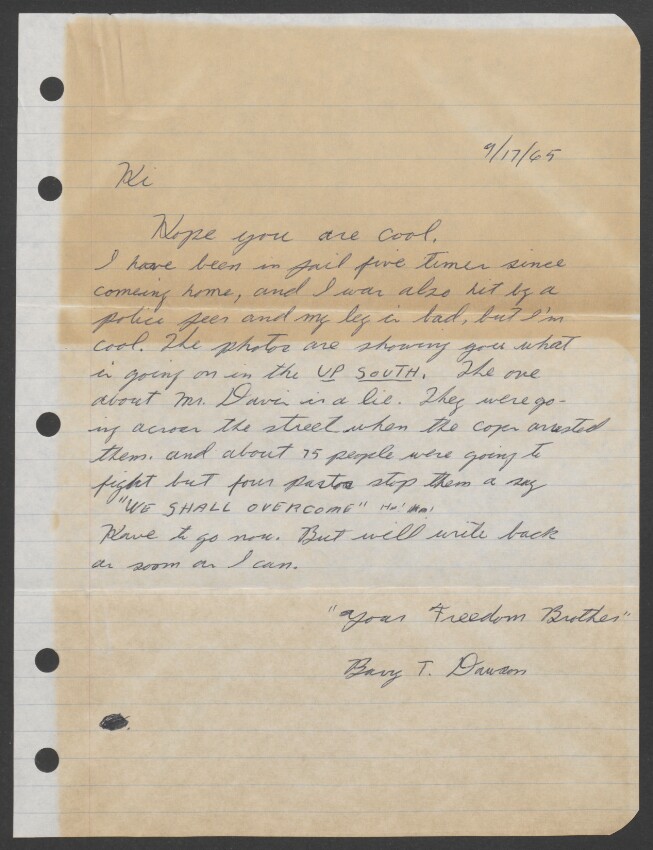 9/17/65
Hi
Hope you are cool.
I have been in jail five times since
comeing home, and I was also hit by a
police and my leg is bad, but I'm
cool. The photos are showing you what
is going on in the UP SOUTH. The one
about Mr. Davis is a lie. They were go-
ing across the street when the cops arrested
them. and about 75 people were going to
fight but four pastors stop them a say
"WE SHALL OVERCOME" Ha! Ha!
Have to go now. But will write back
as soon as I can.
"Your Freedom Brother"
Barry T. Dawson